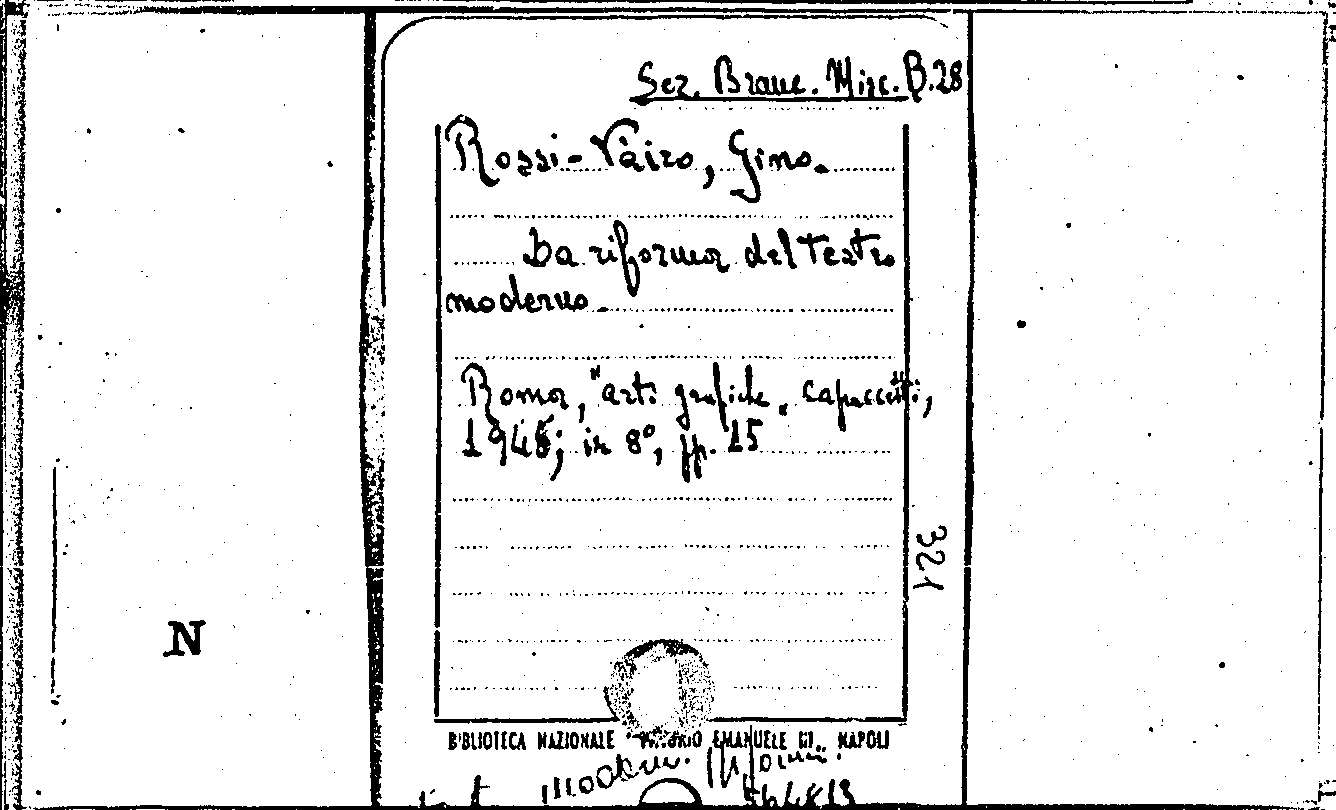 Sez. Branc. Misc. B.28
Rossi-Vairo, Gino.
La riforma del teatro
moderno.
Roma, "arti grafiche" capuccetti,
1945; in 8°, pp. 15
321
N
BIBLIOTECA NAZIONALE "VITTORIO EMANUELE III" NAPOLI